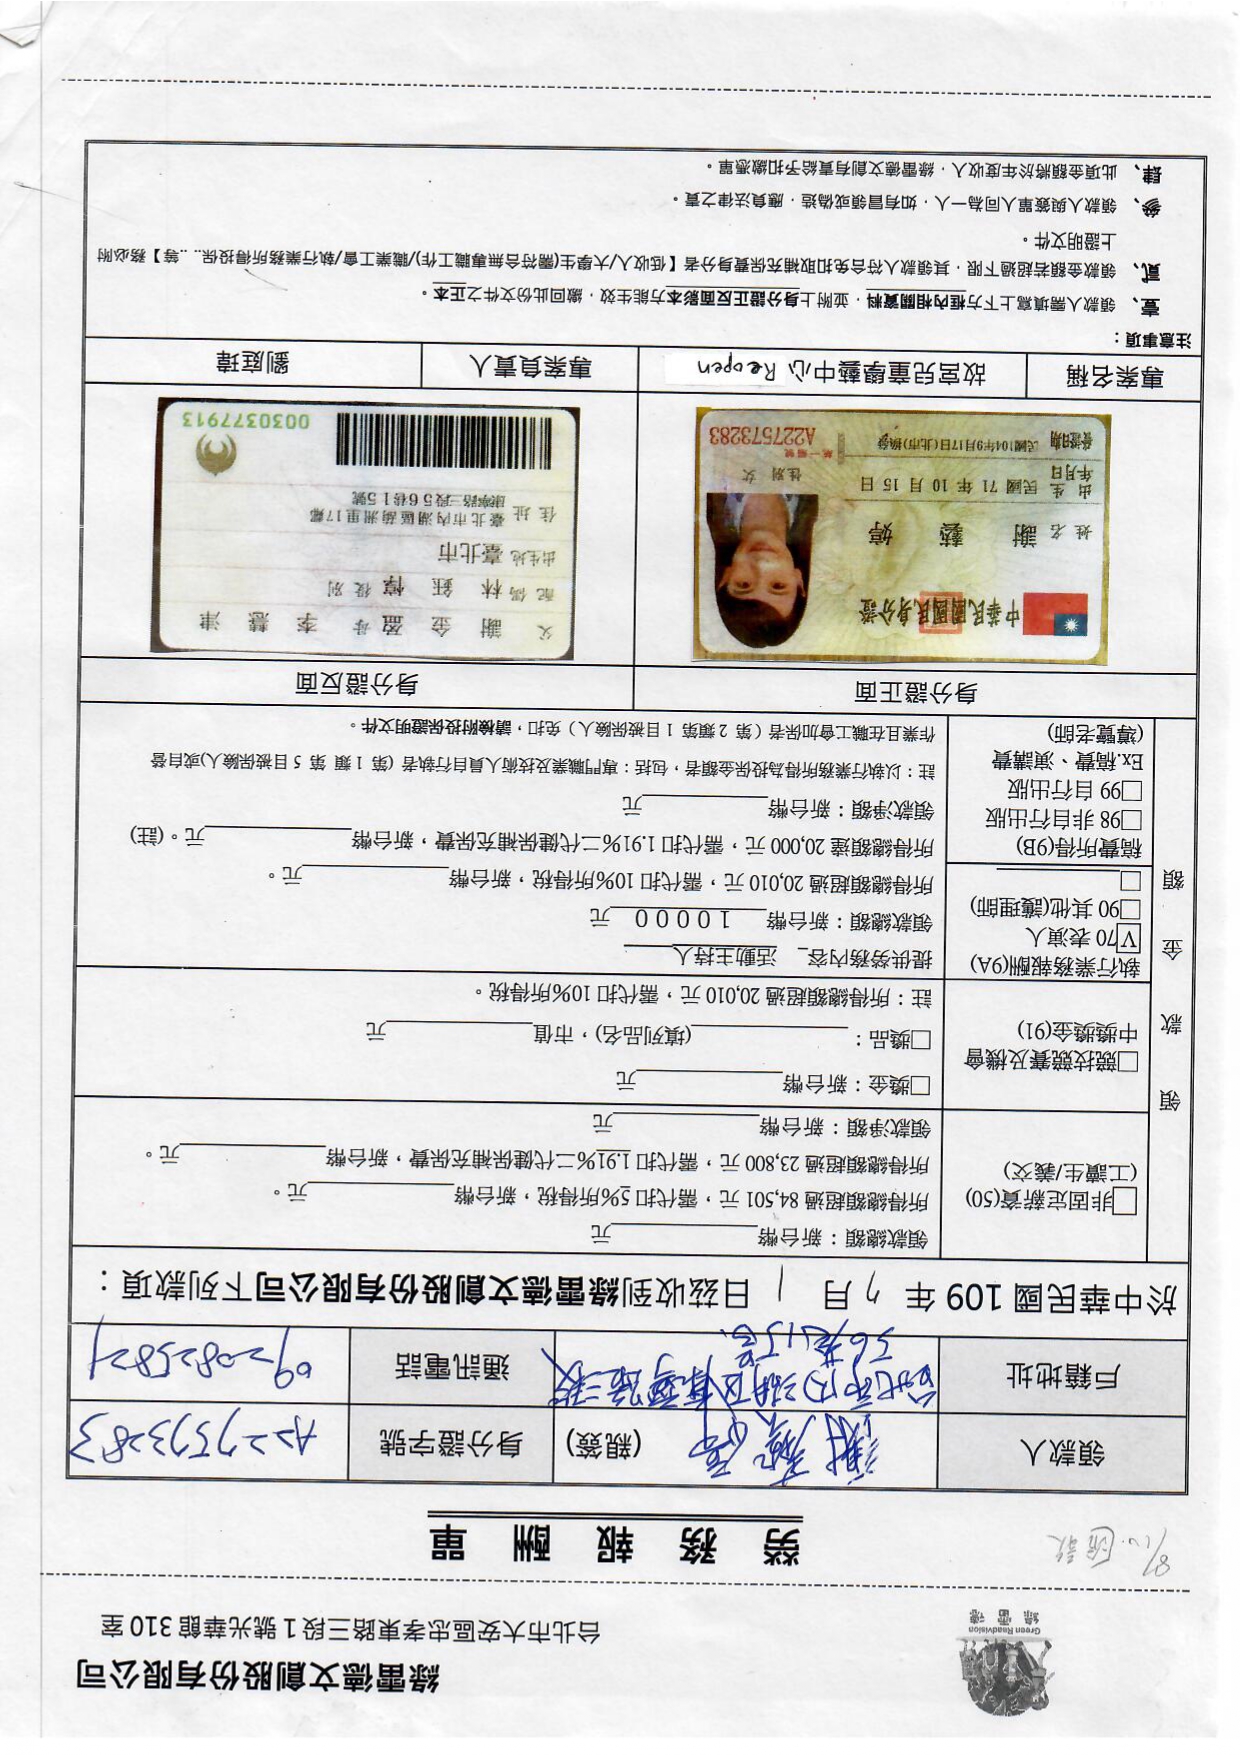 Green Readvision
綠雷德
綠雷德文創股份有限公司
台北市大安區忠孝東路三段1號光華館310室
8/10.匯款
勞務報酬單
領款人 謝藝婷 (親簽) 身分證字號 A227573283
戶籍地址 台北市內湖区康寧路三段56巷15号. 通訊電話 0920825821
於中華民國 109 年 7 月 1 日茲收到綠雷德文創股份有限公司下列款項：
領款金額
□非固定薪資(50)
(工讀生/義交)
領款總額：新台幣____元
所得總額超過 84,501 元，需代扣 5%所得稅，新台幣____元。
所得總額超過 23,800 元，需代扣 1.91%二代健保補充保費，新台幣____元。
領款淨額：新台幣____元
□競技競賽及機會
中獎獎金(91)
□獎金：新台幣____元
□獎品：____(填列品名)，市值____元
註：所得總額超過 20,010 元，需代扣 10%所得稅。
執行業務報酬(9A)
V70 表演人
□90 其他(護理師)
□____
稿費所得(9B)
□98 非自行出版
□99 自行出版
Ex.稿費、演講費
(導覽老師)
提供勞務內容_ 活動主持人
領款總額：新台幣 10000 元
所得總額超過 20,010 元，需代扣 10%所得稅，新台幣____元。
所得總額達 20,000 元，需代扣 1.91%二代健保補充保費，新台幣____元。(註)
領款淨額：新台幣____元
註：以執行業務所得為投保金額者，包括：專門職業及技術人員自行執者 (第 1 類 第 5 目被保險人)或自營
作業且在職工會加保者（第 2 類第 1 目被保險人）免扣，請檢附投保證明文件。
身分證正面 身分證反面
中華民國國民身分證
姓名 謝藝婷
出生年月日 民國 71 年 10 月 15 日
性別 女
發證日期 民國104年9月17日(北市)換發
統一編號
A227573283
父 謝金盈 母 李慧津
配偶 林鈺惇 役別
出生地 臺北市
住址 臺北市內湖區葫洲里17鄰
康寧路三段56巷15號
0030377913
專案名稱 故宮兒童學藝中心 Reopen 專案負責人 劉庭瑋
注意事項：
壹、領款人需填寫上下方框內相關資料，並附上身分證正反面影本方能生效，繳回此份文件之正本。
貳、領款金額若超過下限，其領款人符合免扣取補充保費身分者【低收入/大學生(需符合無專職工作)/職業工會/執行業務所得投保.. ..等】務必附
上證明文件。
參、領款人與簽單人同為一人，如有冒領或偽造，應負法律之責。
肆、此項金額將於年度收入，綠雷德文創有責給予扣繳憑單。